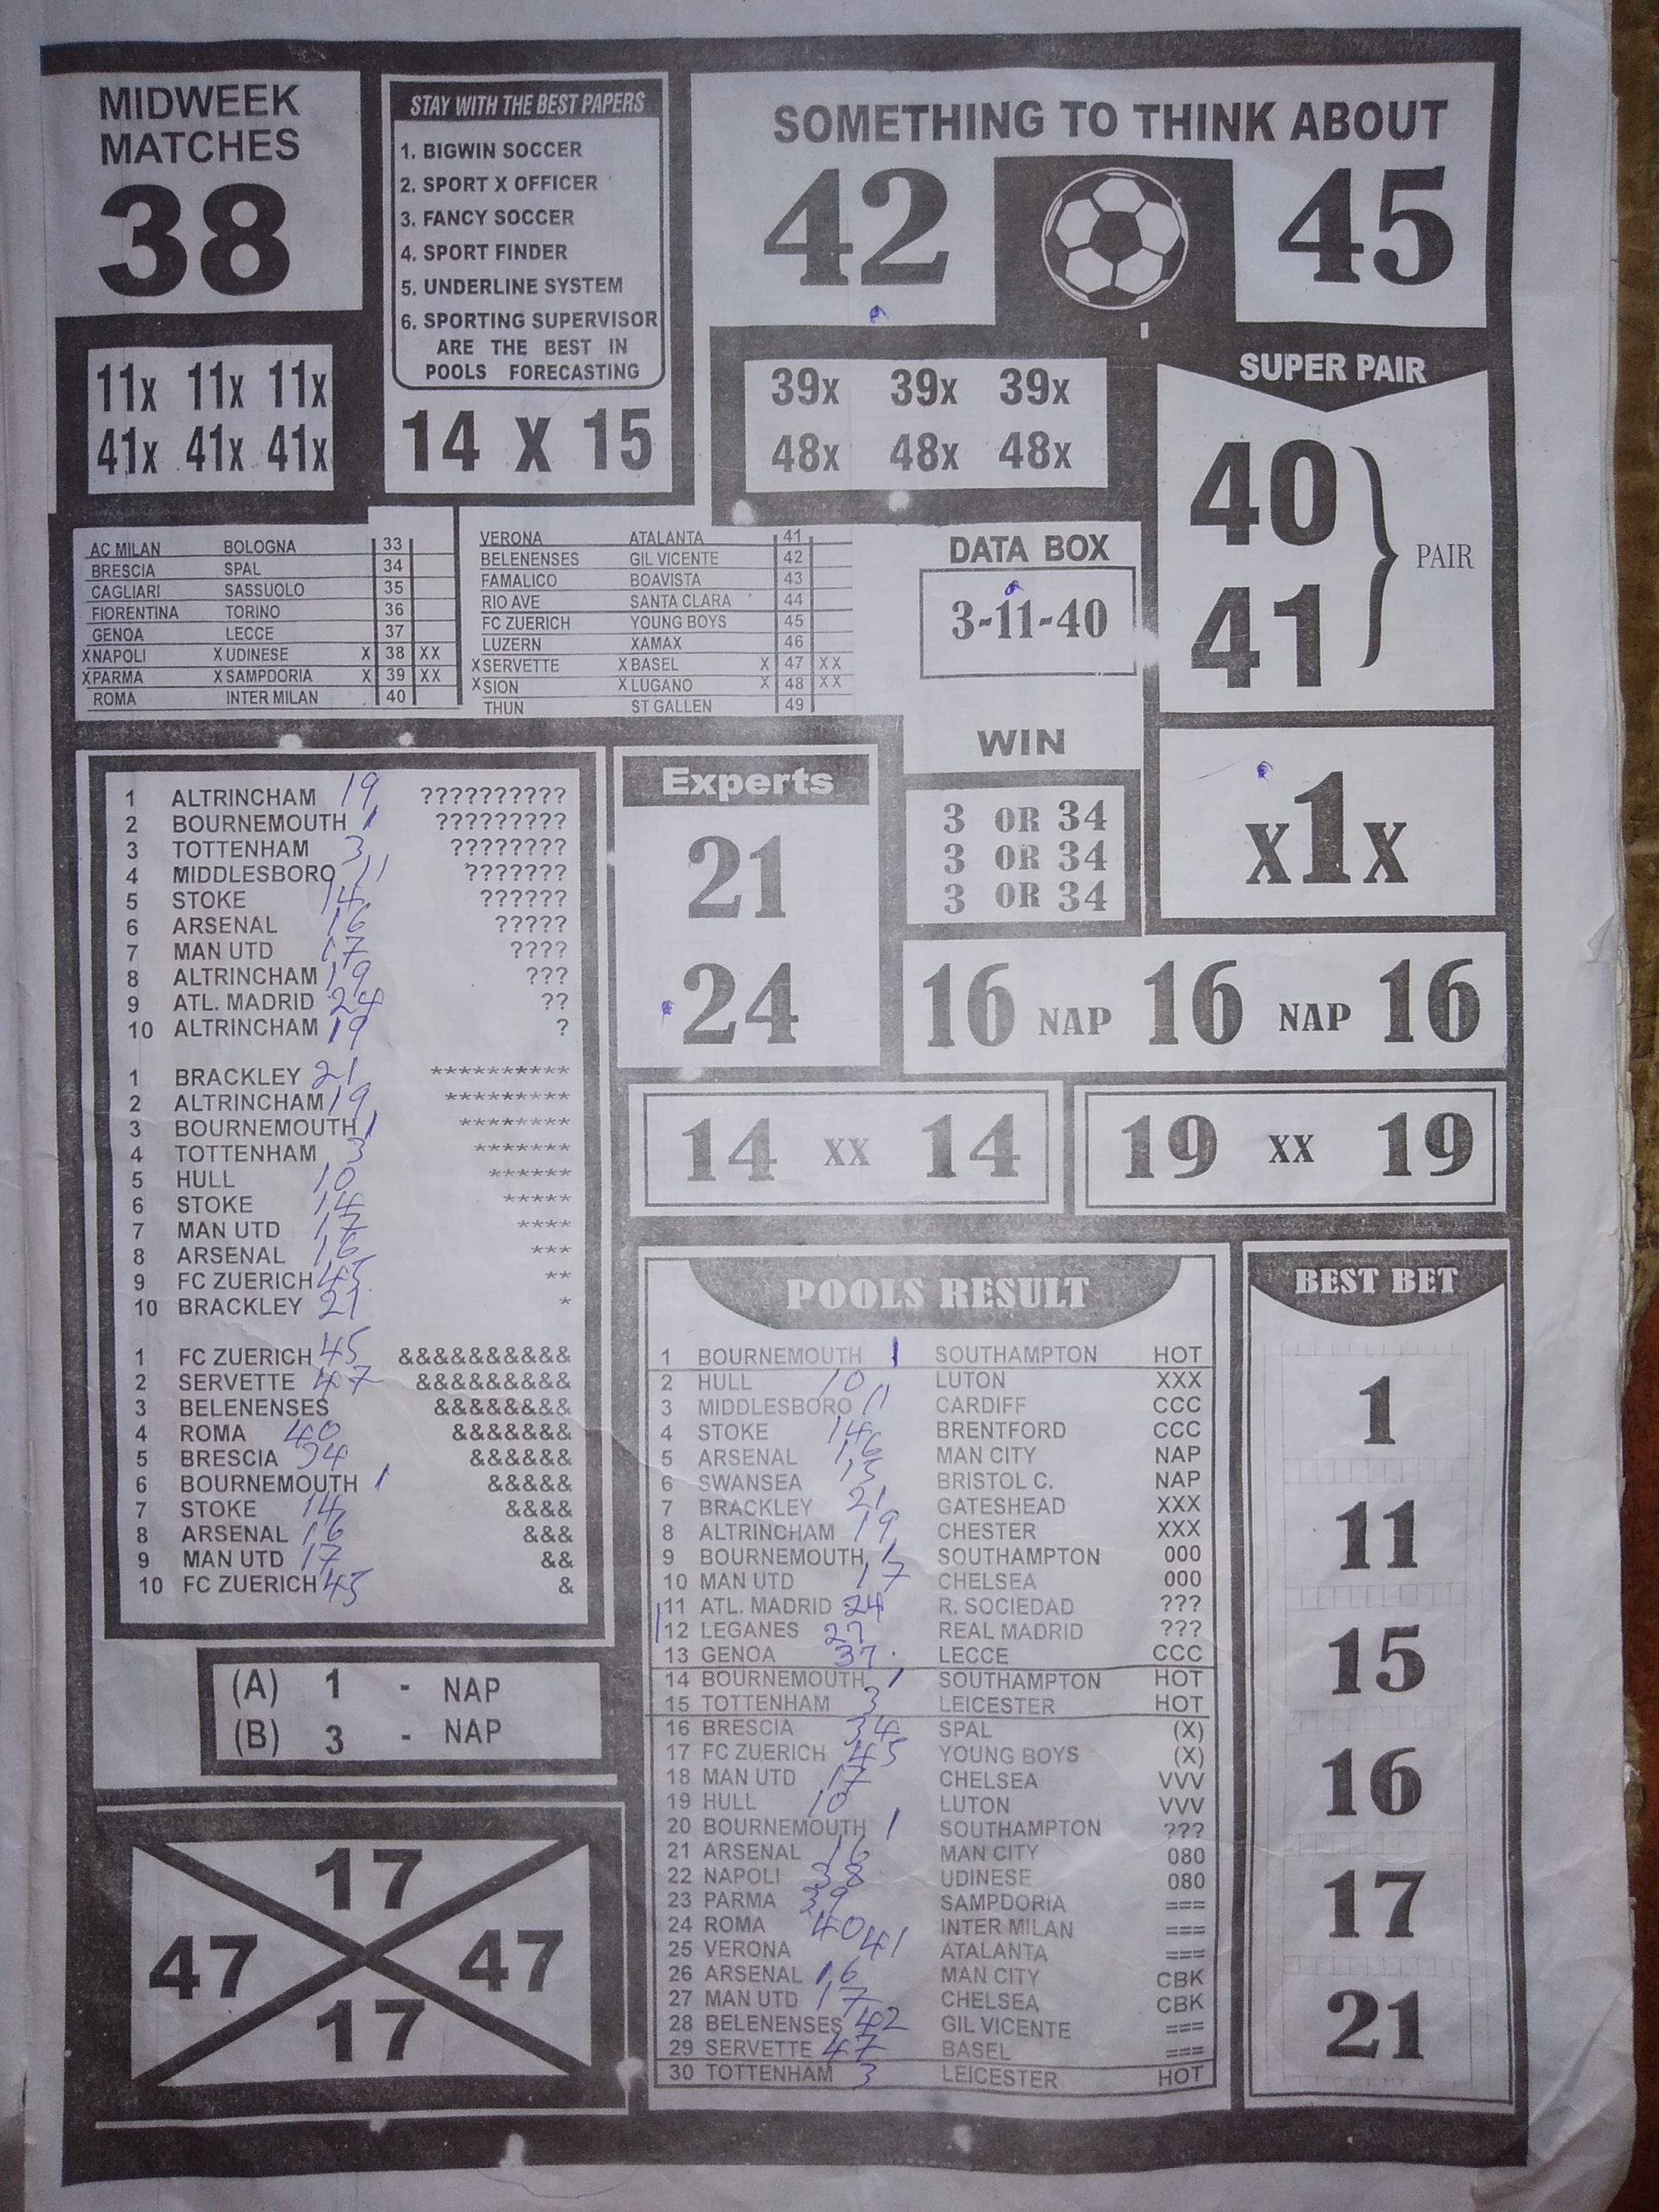 MIDWEEK
MATCHES
38
STAY WITH THE BEST PAPERS
1. BIGWIN SOCCER
2. SPORT X OFFICER
3. FANCY SOCCER
4. SPORT FINDER
5. UNDERLINE SYSTEM
6. SPORTING SUPERVISOR
ARE THE BEST IN
POOLS FORECASTING
14 X 15
SOMETHING TO THINK ABOUT
42 45
11x 11x 11x
41x 41x 41x
39x 39x 39x
48x 48x 48x
SUPER PAIR
40
41
PAIR
AC MILAN BOLOGNA 33
BRESCIA SPAL 34
CAGLIARI SASSUOLO 35
FIORENTINA TORINO 36
GENOA LECCE 37
XNAPOLI XUDINESE X 38 XX
XPARMA XSAMPDORIA X 39 XX
ROMA INTER MILAN 40
VERONA ATALANTA 41
BELENENSES GIL VICENTE 42
FAMALICO BOAVISTA 43
RIO AVE SANTA CLARA 44
FC ZUERICH YOUNG BOYS 45
LUZERN XAMAX 46
XSERVETTE XBASEL X 47 XX
XSION XLUGANO X 48 XX
THUN ST GALLEN 49
DATA BOX
3-11-40
WIN
3 OR 34
3 OR 34
3 OR 34
x1x
Experts
21
24
16 NAP 16 NAP 16
14 XX 14
19 XX 19
1 ALTRINCHAM 19 ??????????
2 BOURNEMOUTH 1 ?????????
3 TOTTENHAM 3 ????????
4 MIDDLESBORO 11 ???????
5 STOKE 14 ??????
6 ARSENAL 16 ?????
7 MAN UTD 17 ????
8 ALTRINCHAM 19 ???
9 ATL. MADRID 24 ??
10 ALTRINCHAM 19 ?
1 BRACKLEY 21 **********
2 ALTRINCHAM 19 *********
3 BOURNEMOUTH 1 ********
4 TOTTENHAM 3 *******
5 HULL 10 ******
6 STOKE 14 *****
7 MAN UTD 17 ****
8 ARSENAL 16 ***
9 FC ZUERICH 45 **
10 BRACKLEY 21 *
1 FC ZUERICH 45 &&&&&&&&&&
2 SERVETTE 47 &&&&&&&&&
3 BELENENSES &&&&&&&&
4 ROMA 40 &&&&&&&
5 BRESCIA 34 &&&&&&
6 BOURNEMOUTH 1 &&&&&
7 STOKE 14 &&&&
8 ARSENAL 16 &&&
9 MAN UTD 17 &&
10 FC ZUERICH 45 &
(A) 1 - NAP
(B) 3 - NAP
17
47 47
17
POOLS RESULT
1 BOURNEMOUTH 1 SOUTHAMPTON HOT
2 HULL 10 LUTON XXX
3 MIDDLESBORO 11 CARDIFF CCC
4 STOKE 14 BRENTFORD CCC
5 ARSENAL 16 MAN CITY NAP
6 SWANSEA 15 BRISTOL C. NAP
7 BRACKLEY 21 GATESHEAD XXX
8 ALTRINCHAM 19 CHESTER XXX
9 BOURNEMOUTH 1 SOUTHAMPTON 000
10 MAN UTD 17 CHELSEA 000
11 ATL. MADRID 24 R. SOCIEDAD ???
12 LEGANES 27 REAL MADRID ???
13 GENOA 37 LECCE CCC
14 BOURNEMOUTH 1 SOUTHAMPTON HOT
15 TOTTENHAM 3 LEICESTER HOT
16 BRESCIA 34 SPAL (X)
17 FC ZUERICH 45 YOUNG BOYS (X)
18 MAN UTD 17 CHELSEA VVV
19 HULL 10 LUTON VVV
20 BOURNEMOUTH 1 SOUTHAMPTON ???
21 ARSENAL 16 MAN CITY 080
22 NAPOLI 38 UDINESE 080
23 PARMA 39 SAMPDORIA ===
24 ROMA 40 INTER MILAN ===
25 VERONA 41 ATALANTA ===
26 ARSENAL 16 MAN CITY CBK
27 MAN UTD 17 CHELSEA CBK
28 BELENENSES 42 GIL VICENTE ===
29 SERVETTE 47 BASEL ===
30 TOTTENHAM 3 LEICESTER HOT
BEST BET
1
11
15
16
17
21